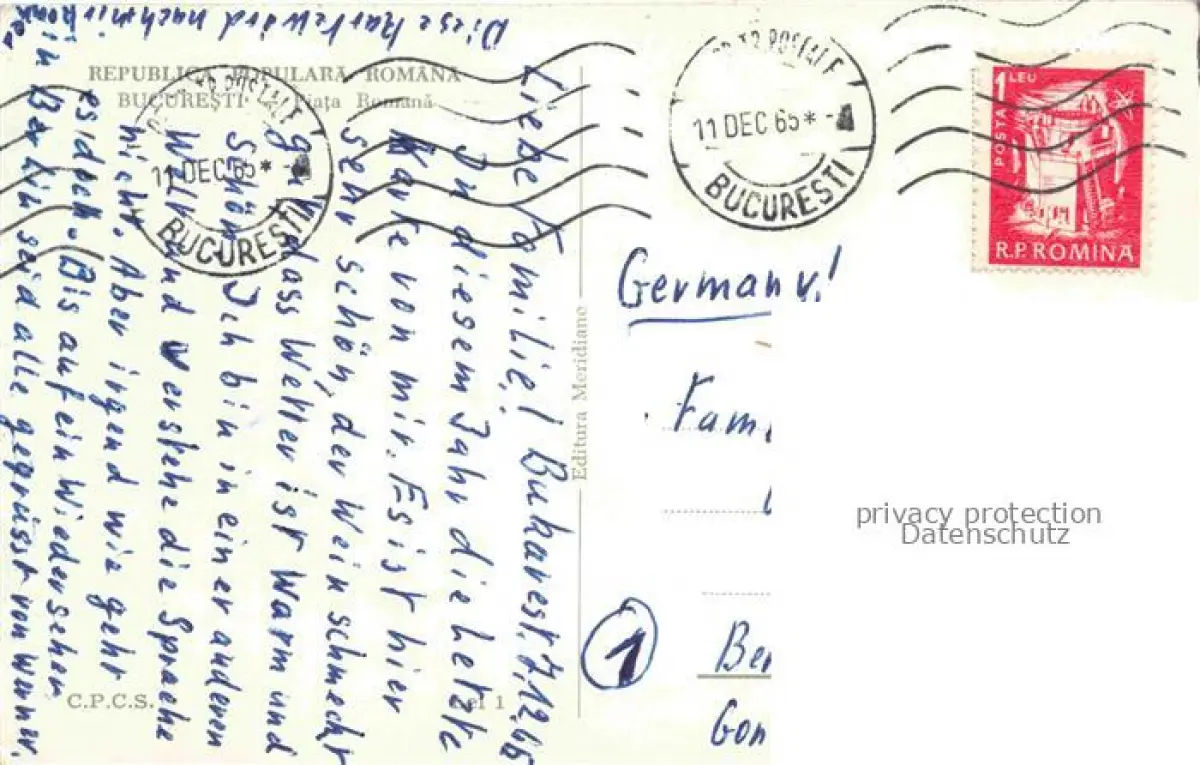 REPUBLICA POPULARĂ ROMÂNĂ
BUCUREȘTI - Piața Romană
Liebe Familie! Bukarest. 7.12.65
In diesem Jahr die letzte
Karte von mir. Es ist hier
sehr schön, der Wein schmeckt
gut, dass Wetter ist Warm und
Schön. Ich bin in einer anderen
Welt und verstehe die Sprache
nicht. Aber irgend wie geht
es doch. Bis auf ein Wiedersehen
in Berlin seid alle gegrüsst von
Diese Karte wird nach mir
C.P.C.S.
lei 1
Editura Meridiane
11 DEC 65*-
BUCUREȘTI
11 DEC 65*-
BUCUREȘTI
1 LEU
POSTA
R.P. ROMINA
Germany!
Fam.
1
Ber
Gon
privacy protection
Datenschutz